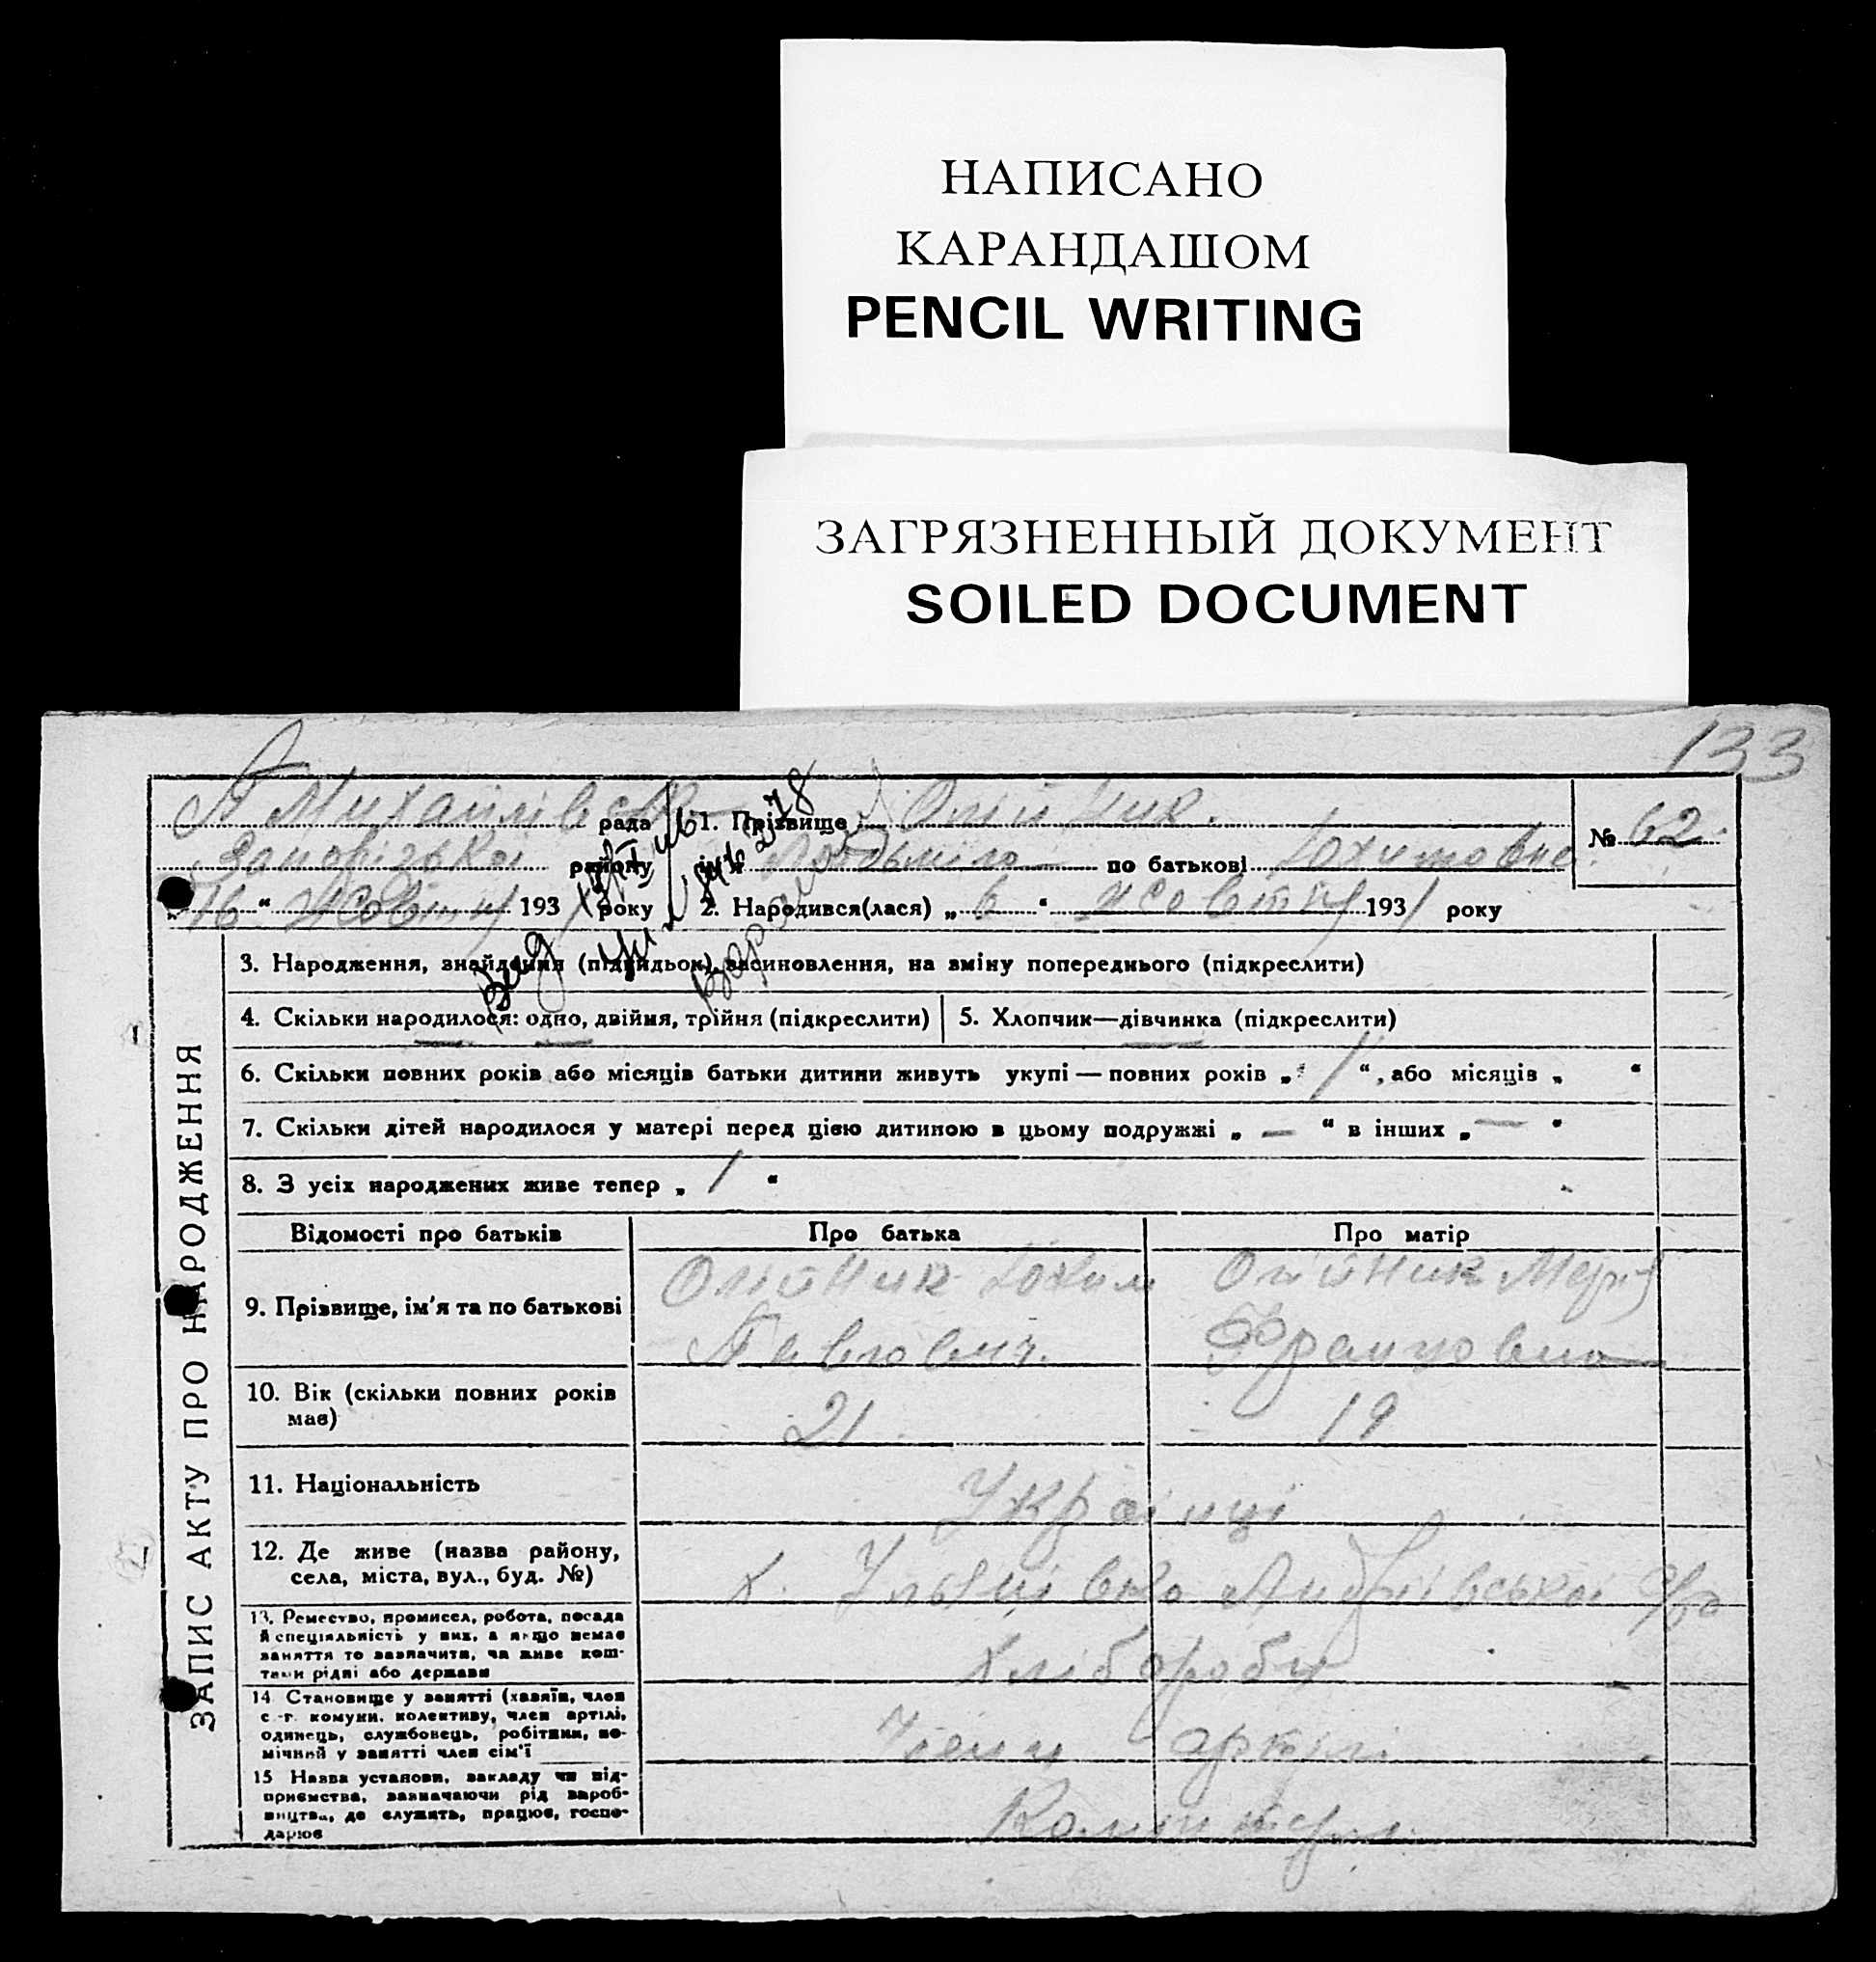 НАПИСАНО
КАРАНДАШОМ
PENCIL WRITING
ЗАГРЯЗНЕННЫЙ ДОКУМЕНТ
SOILED DOCUMENT
133
Михайлівська рада 1. Прізвище Олійник. № 62
району ім'я по батькові Юхимовна
16 “ Жовтня 1931 року 2. Народився(лася) „ 6 “ жовтня 1931 року
3. Народження, знайдення (підкидьок), всиновлення, на зміну попереднього (підкреслити)
4. Скільки народилося: одно, двійня, трійня (підкреслити) 5. Хлопчик—дівчинка (підкреслити)
6. Скільки повних років або місяців батьки дитини живуть укупі — повних років „ 1 “, або місяців „ “
7. Скільки дітей народилося у матері перед цією дитиною в цьому подружжі „ — “ в інших „ — “
8. З усіх народжених живе тепер „ 1 “
ЗАПИС АКТУ ПРО НАРОДЖЕННЯ
Відомості про батьків Про батька Про матір
9. Прізвище, ім'я та по батькові
Олійник Юхим
Павлович.
Олійник Марія
Францовна
10. Вік (скільки повних років
має)
21 19
11. Національність Українці
12. Де живе (назва району,
села, міста, вул., буд. №)
х.
13. Ремество, промисел, робота, посада
й спеціяльність у них, а якщо немає
заняття то зазначити, чи живе кош-
тами рідні або держави
Хлібороби
14 Становище у занятті (хазяїн, член
с.-г. комуни, колективу, член артілі,
одинець, службовець, робітник, по-
мічний у занятті член сім'ї
Члени артілі
15 Назва установи, закладу чи під-
приємства, зазначаючи рід вироб-
ництва, де служить, працює, госпо-
дарює